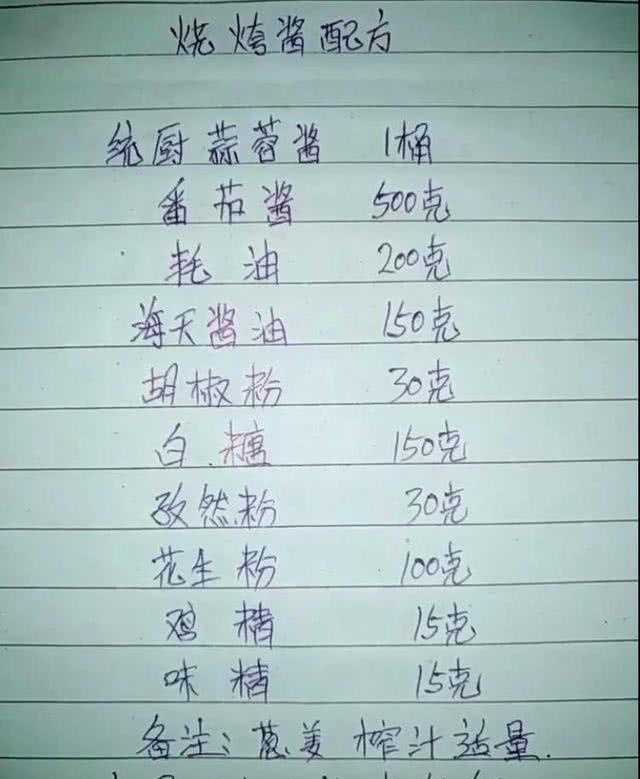 烧烤酱配方
统厨蒜蓉酱 1桶
番茄酱 500克
耗油 200克
海天酱油 150克
胡椒粉 30克
白.糖 150克
孜然粉 30克
花生粉 100克
鸡精 15克
味精 15克
备注：葱姜榨汁适量.